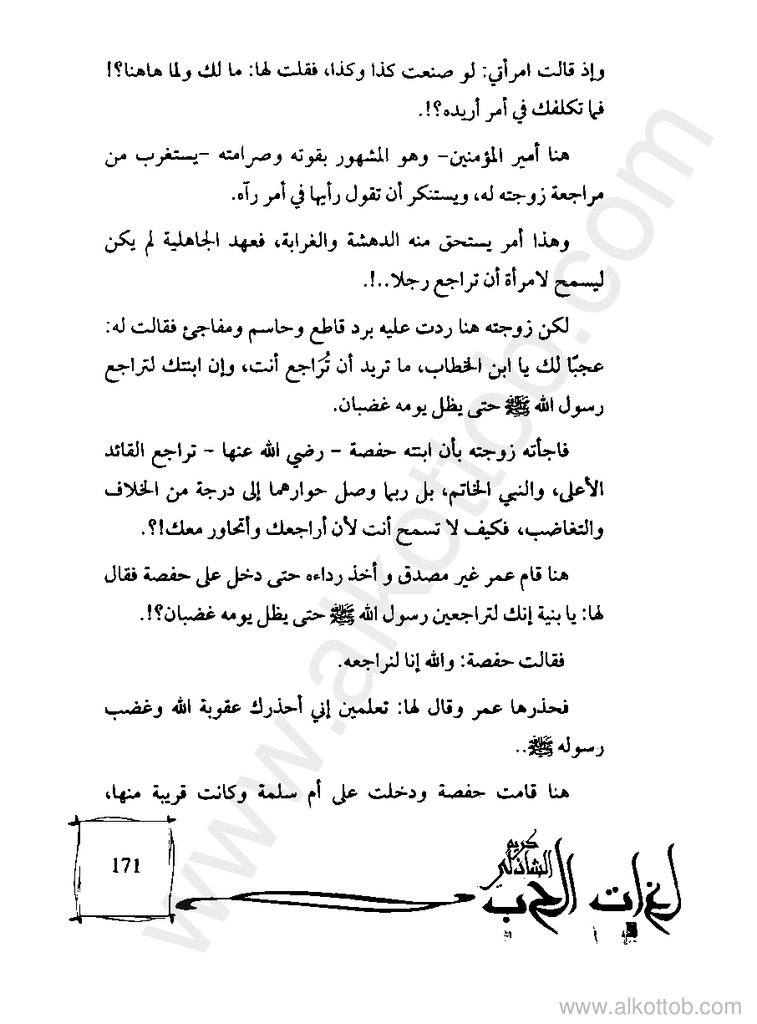 وإذ قالت امرأتي: لو صنعت كذا وكذا، فقلت لها: ما لك ولما هاهنا؟!
فما تكلفك في أمر أريده؟!.
هنا أمير المؤمنين- وهو المشهور بقوته وصرامته -يستغرب من
مراجعة زوجته له، ويستنكر أن تقول رأيها في أمر رآه.
وهذا أمر يستحق منه الدهشة والغرابة، فعهد الجاهلية لم يكن
ليسمح لامرأة أن تراجع رجلا..!.
لكن زوجته هنا ردت عليه برد قاطع وحاسم ومفاجئ فقالت له:
عجبًا لك يا ابن الخطاب، ما تريد أن تُرَاجع أنت، وإن ابنتك لتراجع
رسول الله ﷺ حتى يظل يومه غضبان.
فاجأته زوجته بأن ابنته حفصة - رضي الله عنها - تراجع القائد
الأعلى، والنبي الخاتم، بل ربما وصل حوارهما إلى درجة من الخلاف
والتغاضب، فكيف لا تسمح أنت لأن أراجعك وأتحاور معك!؟.
هنا قام عمر غير مصدق و أخذ رداءه حتى دخل على حفصة فقال
لها: يا بنية إنك لتراجعين رسول الله ﷺ حتى يظل يومه غضبان؟!.
فقالت حفصة: والله إنا لنراجعه.
فحذرها عمر وقال لها: تعلمين إني أحذرك عقوبة الله وغضب
رسوله ﷺ..
هنا قامت حفصة ودخلت على أم سلمة وكانت قريبة منها،
كريم
الشاذلي
لغات الحب
171
www.alkottob.com
www.alkottob.com